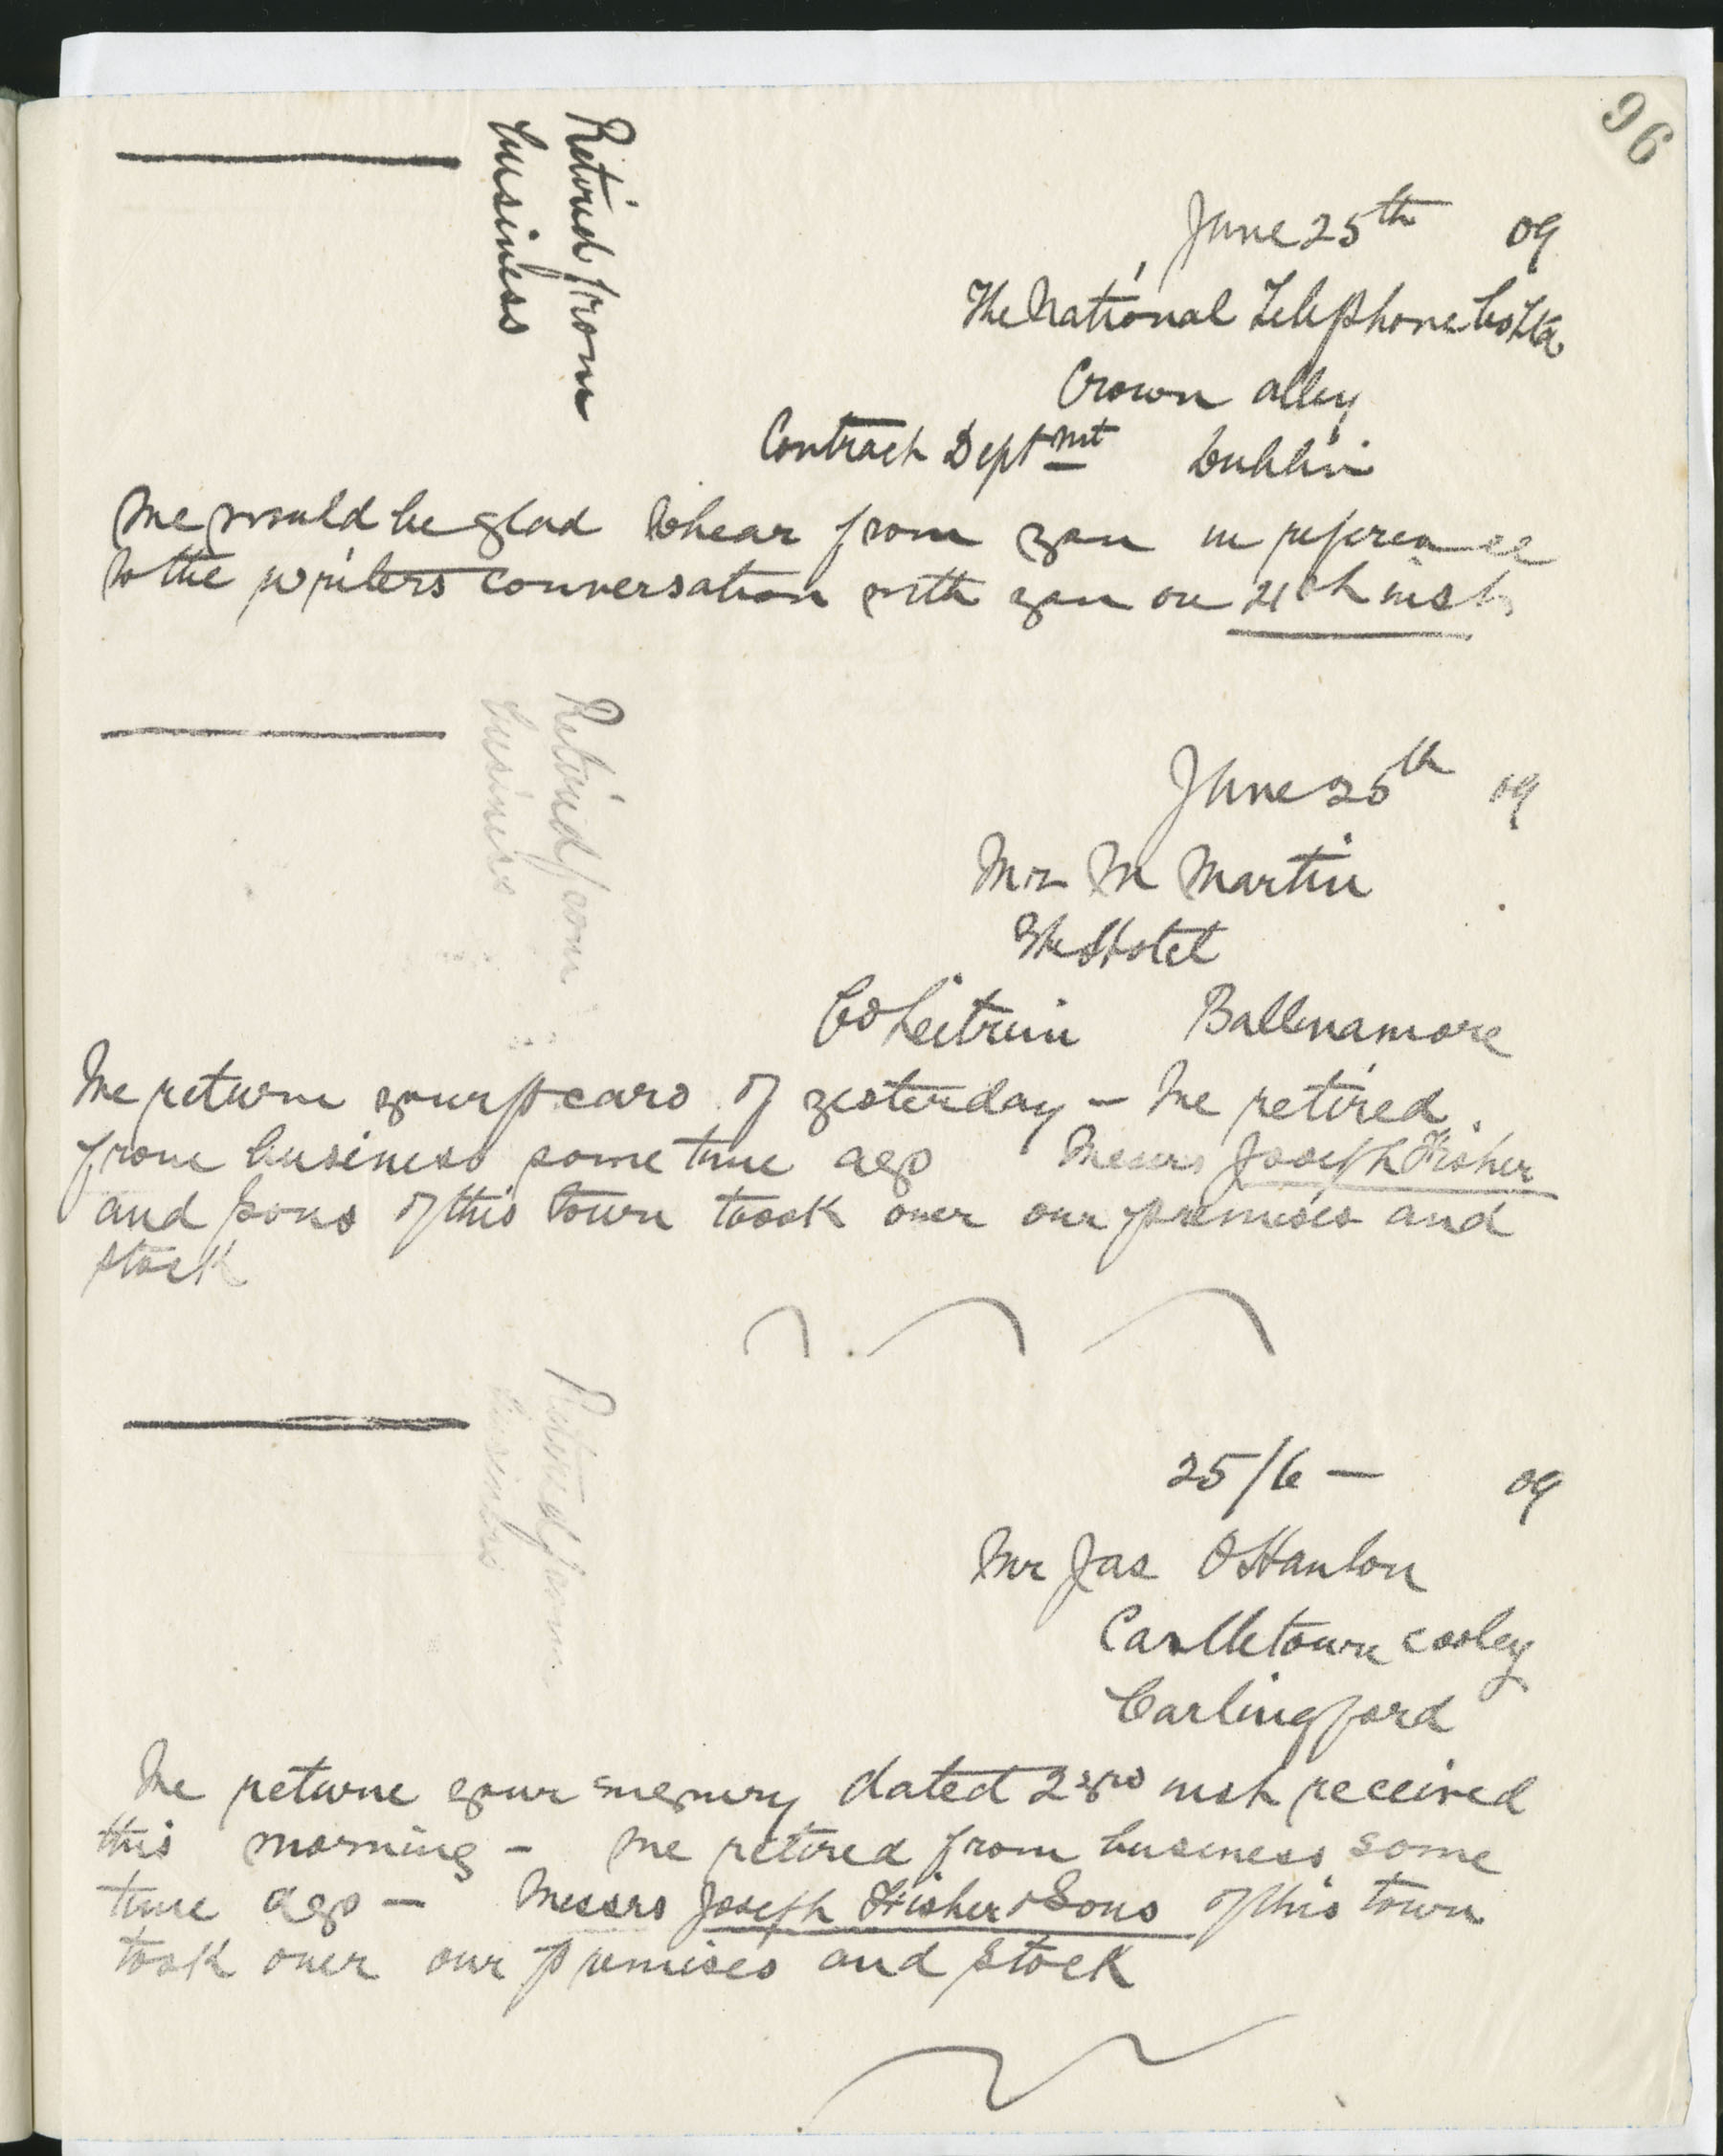 96
Retired from
business
June 25th 09
The National Telephone Co Ltd
Crown alley
Contract Deptmt Dublin
We would be glad to hear from you in reference
to the writers conversation with you on 21th inst
Retired from
business
June 25th 09
Mr M Martin
The Hotel
Co Leitrim Ballinamore
We return your p card of yesterday - We retired
from business some time ago Messrs Joseph Fisher
and Sons of this town took over our premises and
stock
Retired from
business
25/6 - 09
Mr Jas O Hanlon
Castletown cooley
Carlingford
We return your enquiry dated 23rd inst received
this morning - We retired from business some
time ago - Messrs Joseph Fisher & Sons of this town
took over our premises and stock